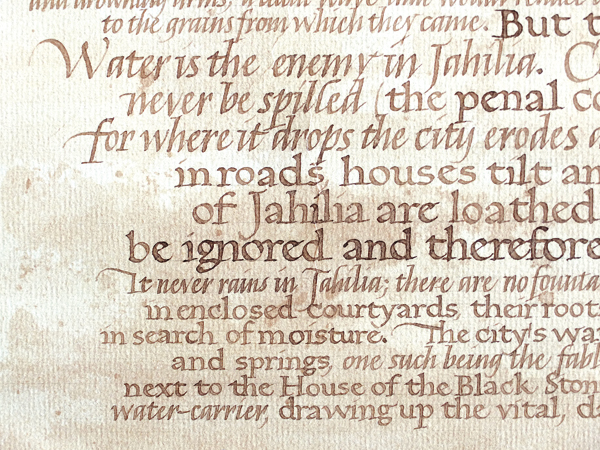 and drowning arms, a
to the grains from which they came. But t
Water is the enemy in Jahilia. C
never be spilled (the penal co
for where it drops the city erodes a
in roads, houses tilt an
of Jahilia are loathed
be ignored and therefore
It never rains in Jahilia; there are no founta
in enclosed courtyards, their roots
in search of moisture. The city's wa
and springs, one such being the fabl
next to the House of the Black Ston
water-carrier, drawing up the vital, da